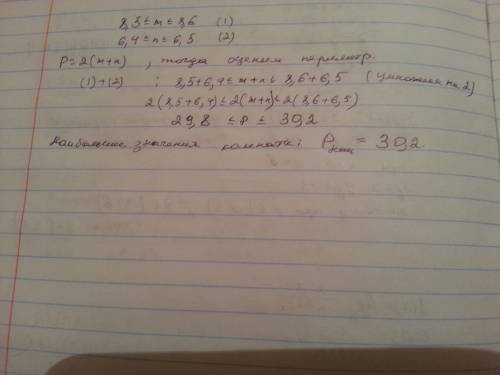 8,5 ≤ m ≤ 8,6 (1)
6,4 ≤ n ≤ 6,5 (2)
P = 2(m+n) , тогда оценим периметр.
(1)+(2) : 8,5+6,4 ≤ m+n ≤ 8,6+6,5 (умножим на 2)
2(8,5+6,4) ≤ 2(m+n) ≤ 2(8,6+6,5)
29,8 ≤ P ≤ 30,2
Наибольшие значения комнаты: P = 30,2